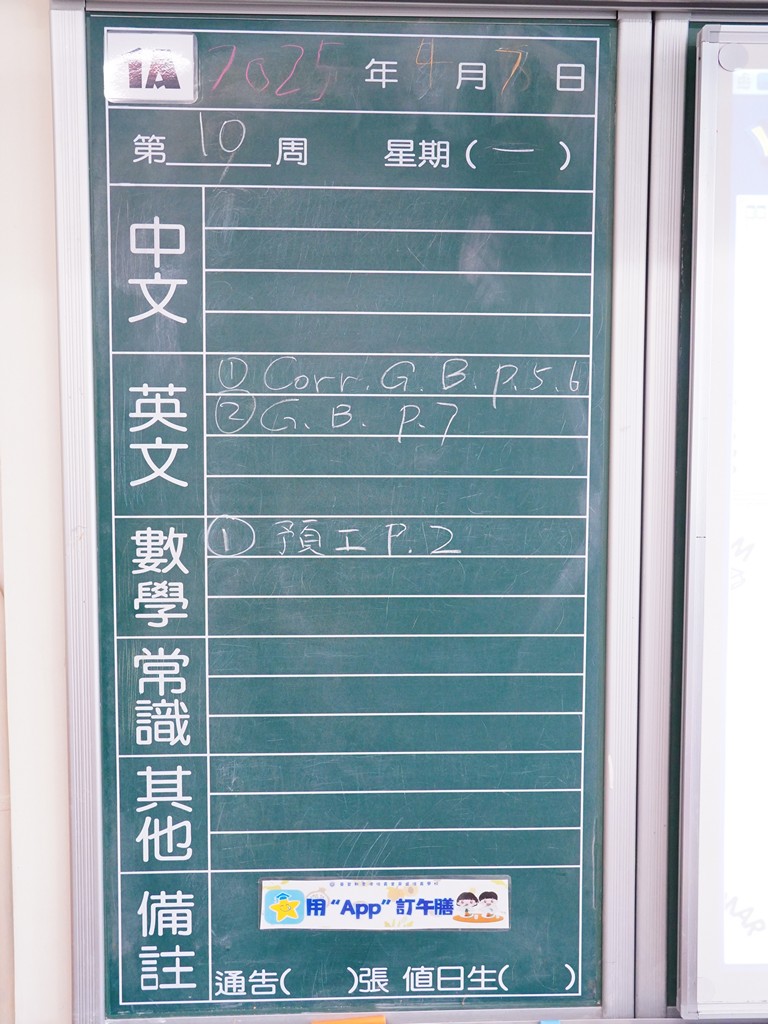 1A 2025 年 4 月 7 日
第 10 周 星期 ( 一 )
中文
英文
① Corr. G. B. p.5.6
② G. B. p.7
數學
① 預工 P.2
常識
其他
備註
用 “App” 訂午膳
通告( )張 值日生( )